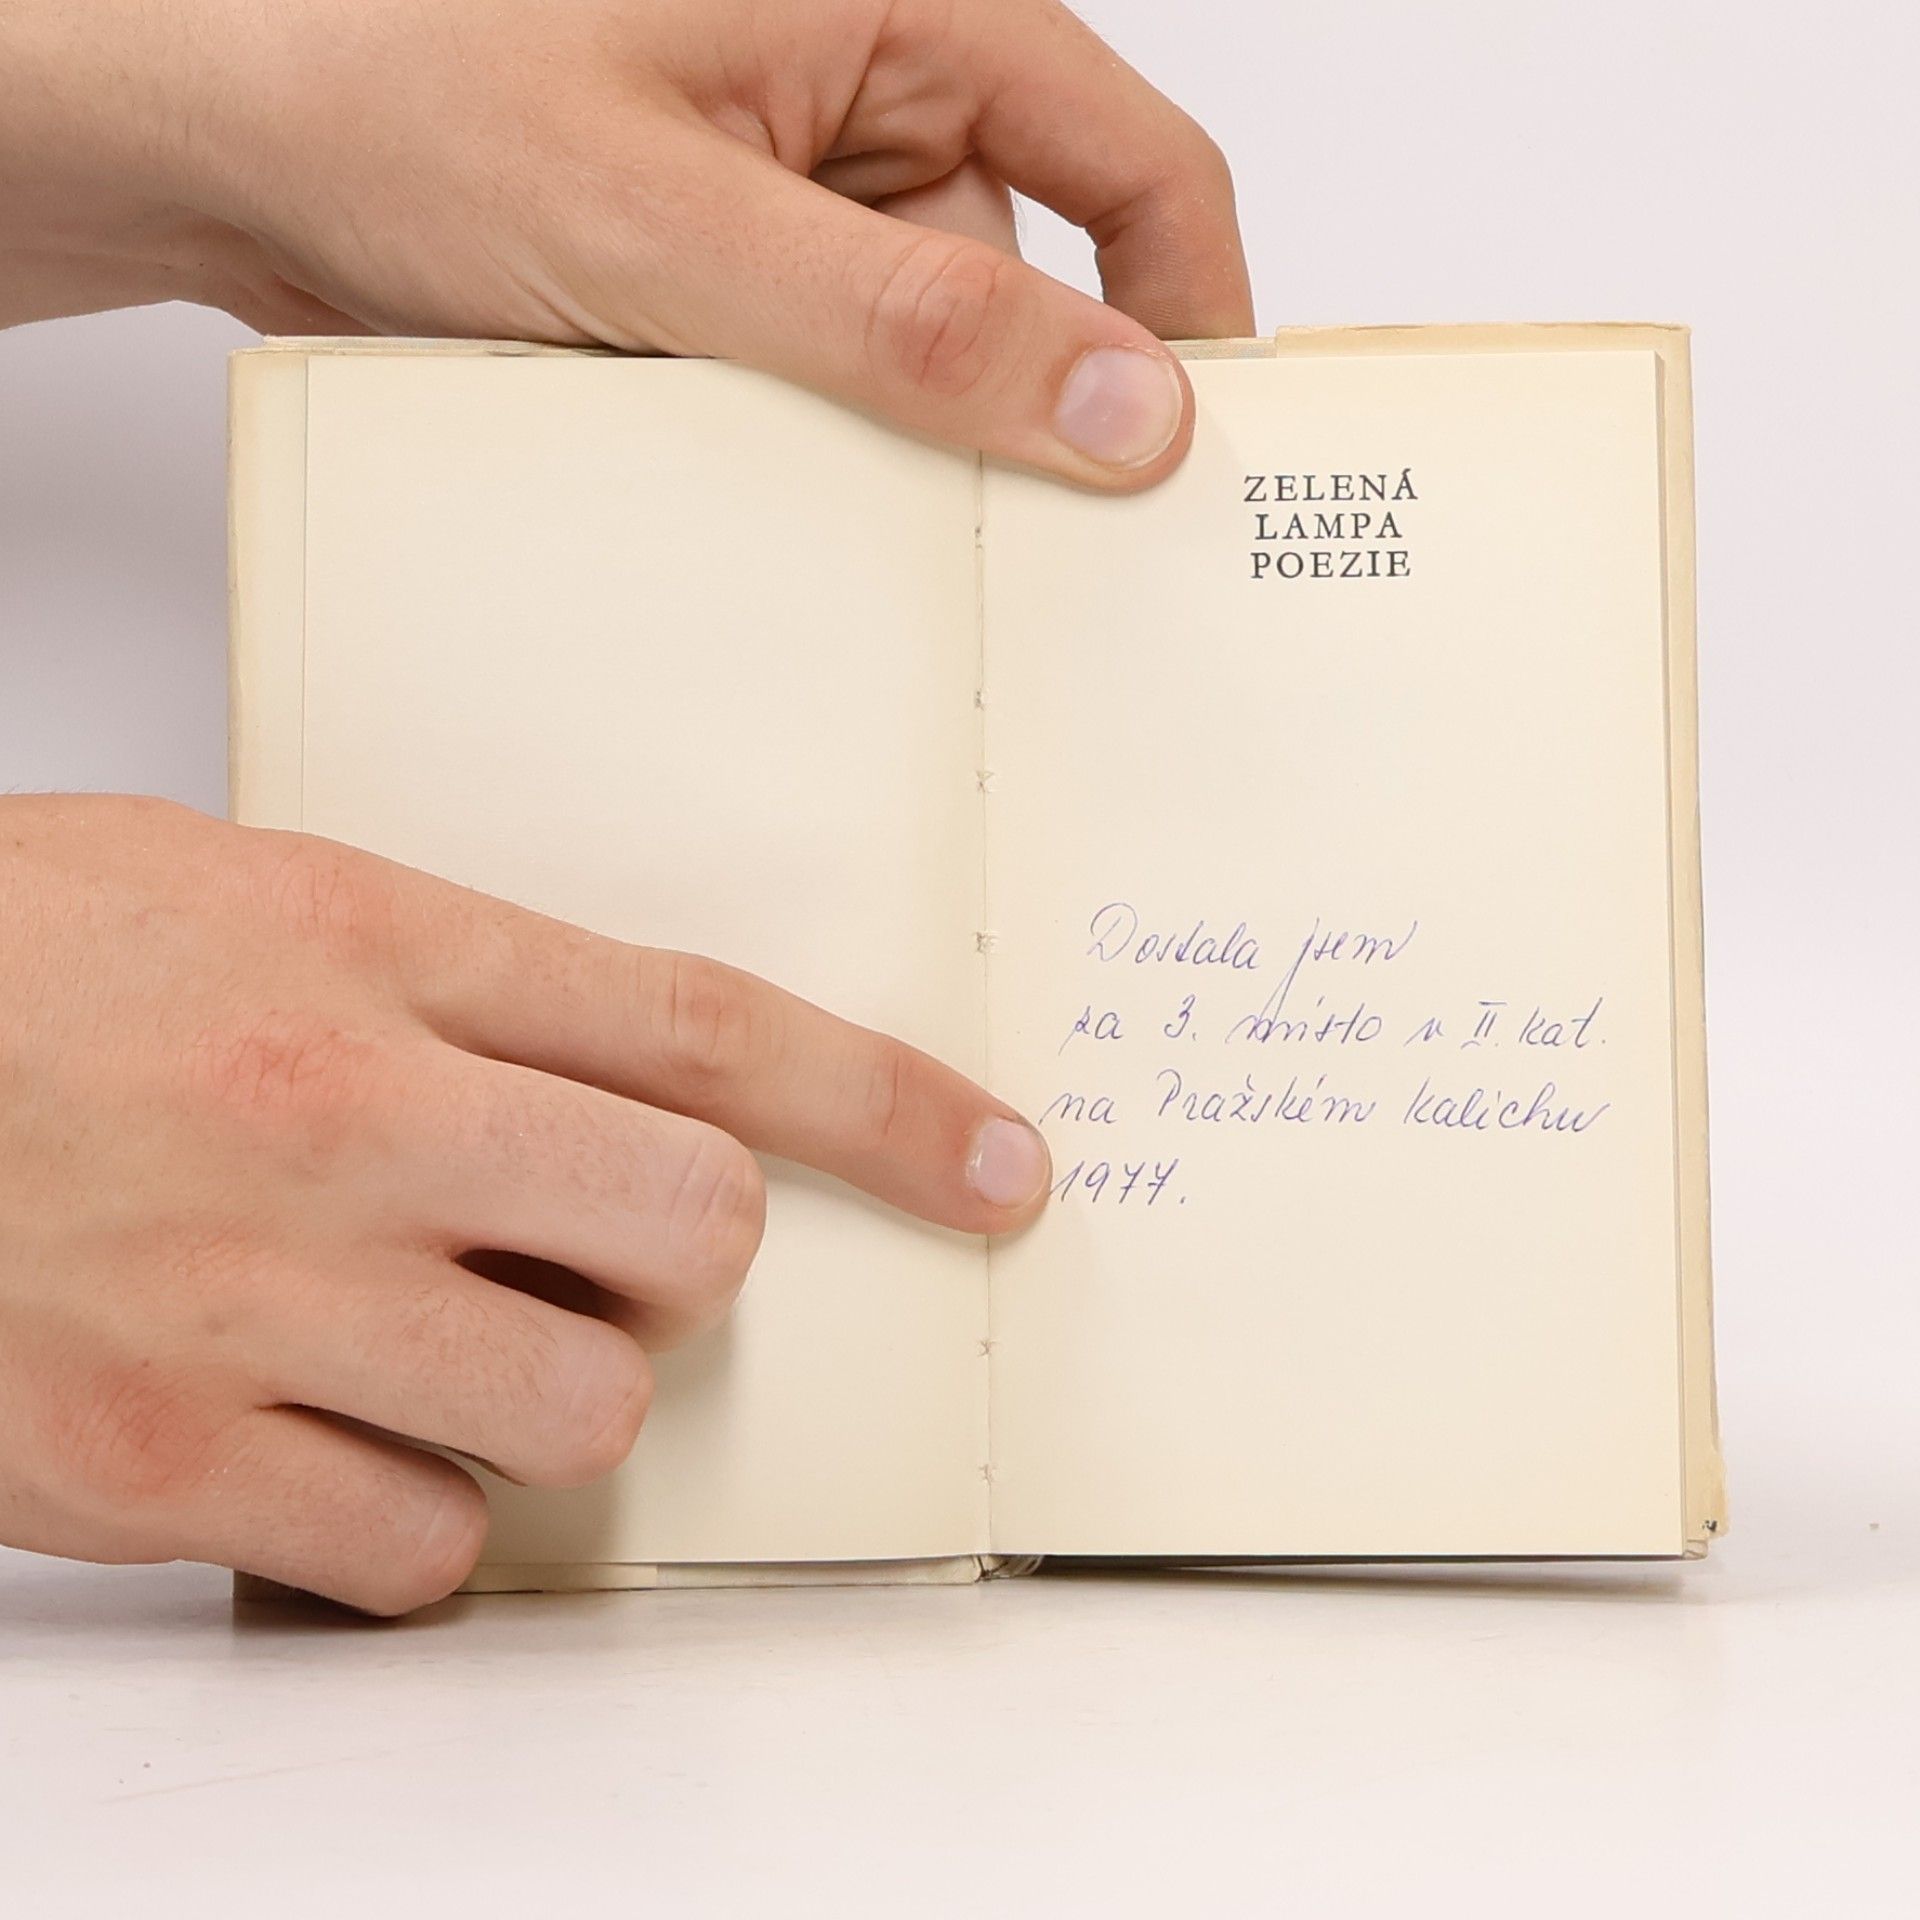 ZELENÁ
LAMPA
POEZIE
Dostala jsem
za 3. místo v II. kat.
na Pražském kalichu
1977.